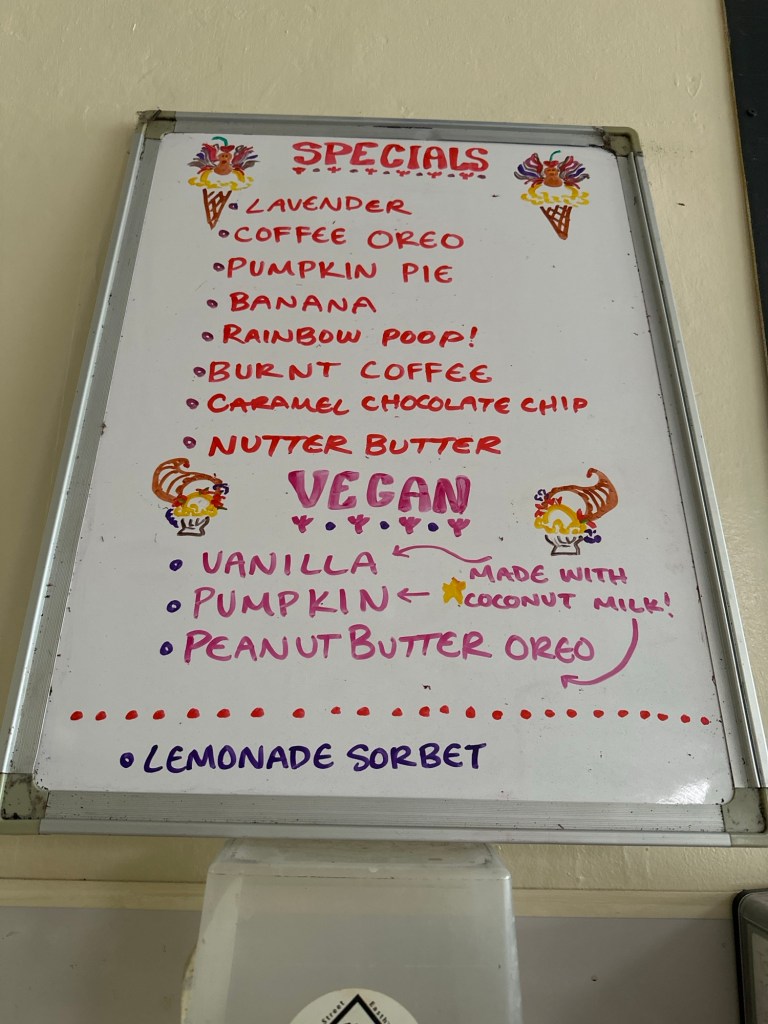 SPECIALS
• LAVENDER
• COFFEE OREO
• PUMPKIN PIE
• BANANA
• RAINBOW POOP!
• BURNT COFFEE
• CARAMEL CHOCOLATE CHIP
• NUTTER BUTTER
VEGAN
• VANILLA
• PUMPKIN
• PEANUT BUTTER OREO
MADE WITH
COCONUT MILK!
• LEMONADE SORBET
Street